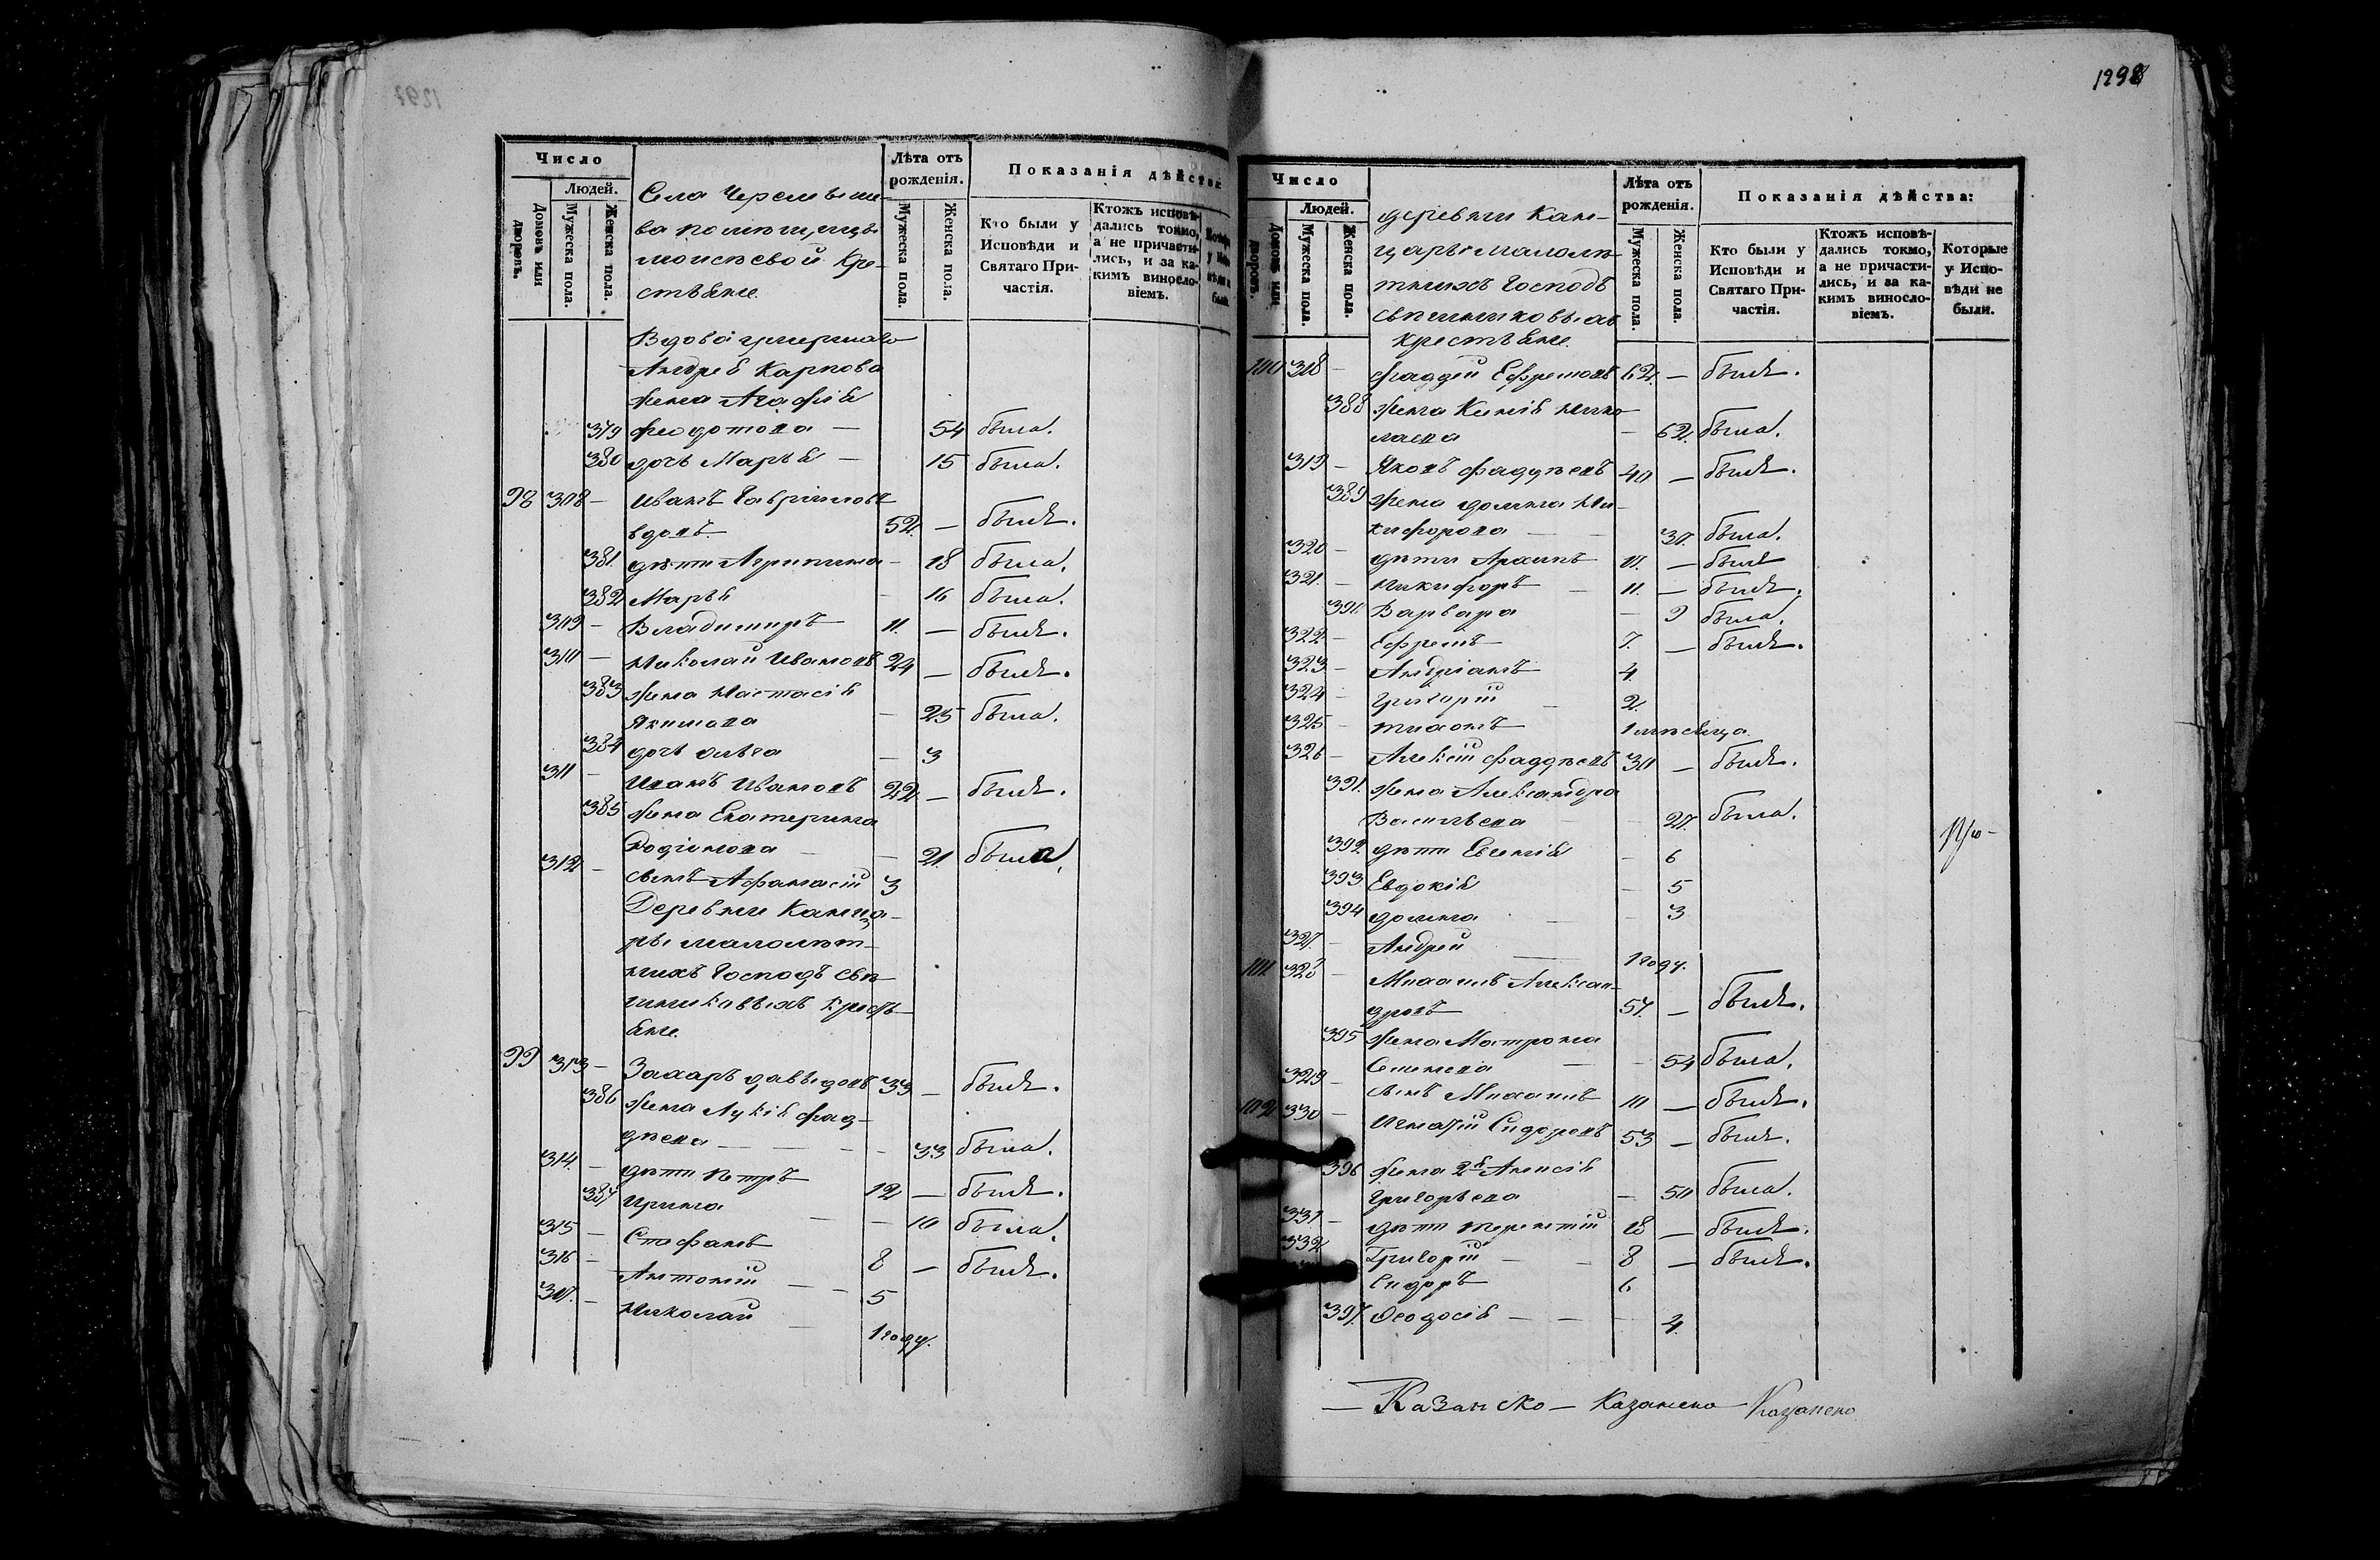 1298
Число
Людей.
Домовъ или дворовъ.
Мужеска пола.
Женска пола.
Лѣта отъ рожденія.
Мужеска пола.
Женска пола.
Показанія дѣйства
Кто были у Исповѣди и Святаго Причастія.
Ктожъ исповѣдались токмо, а не причастились, и за какимъ винословіемъ.
Села
крестьяне.
Вдова умершаго
Андрея Карпова
жена Агафія
379 Феодотова — 54 была.
380 дочь Марья — 15 была.
98 308 — Иванъ Гавріиловъ
вдовъ. 52. — былъ.
381. дѣти Агрипина — 18 была.
382 Марья — 16 была.
309 — Владимиръ 11. — былъ.
310 — Николай Ивановъ 24 — былъ.
383 жена Настасія
Якимова — 25 была.
384 дочь Ольга — 3
311 — Иванъ Ивановъ 22 — былъ.
385 жена Екатерина
Родіонова — 21. была.
312 — сынъ Афанасій 3
Деревни Канца-
ры малолѣт-
нихъ Господъ Свѣ-
шниковыхъ крестъ-
яне.
99 313 — Захаръ Давыдовъ 33 — былъ.
386 жена Лукія Фад-
дѣева — 33 была.
314. — дѣти Петръ 12 — былъ.
387 Ирина — 10 была.
315 — Стефанъ 8 — былъ.
316 — Антоній 5
317. — Николай 1 году.
Число
Людей.
Домовъ или дворовъ.
Мужеска пола.
Женска пола.
деревни Кан-
цары малолѣ-
тнихъ Господъ
Свѣшниковыхъ
крестьяне.
Лѣта отъ рожденія.
Мужеска пола.
Женска пола.
Показанія дѣйства:
Кто были у Исповѣди и Святаго Причастія.
Ктожъ исповѣдались токмо, а не причастились, и за какимъ винословіемъ.
Которые у Исповѣди не были.
100 318 — Фаддей Ефремовъ 62. — былъ.
388 жена Ксенія Нико-
лаева — 62. была.
319 — Яковъ Фаддѣевъ 40 — былъ.
389 жена Домна Ни-
кифорова — 37. была.
320 — дѣти Архипъ — былъ
321. — Никифоръ 11. — былъ.
391. Варвара — 9 была.
322 — Ефремъ 7. — былъ.
323 — Андріанъ 4.
324 — Григорій 2.
325 — 1 мѣсяца
326 — Алексій Фаддѣевъ 30 — былъ.
391. жена Александра
Васильева — 27. была.
392. дѣти Евгенія — 6
393 Евдокія — 5
394 Домна — 3
327. — Андрей 1 году.
101. 328 — Михаилъ Алексан-
дровъ 57. — былъ.
395 жена Матрона
Семенова — 54 была.
329 — сынъ Михаилъ 10 — былъ.
102 330 — Игнатій Сидоровъ 53 — былъ.
396 жена 2я Анисія
Григорьева — 50 была.
331 — дѣти Терентій 18 — былъ.
332 Григорій — 8 — былъ.
Сидоръ 6
397. Феодосія — 4.
— Казанско — Казанско Казанско